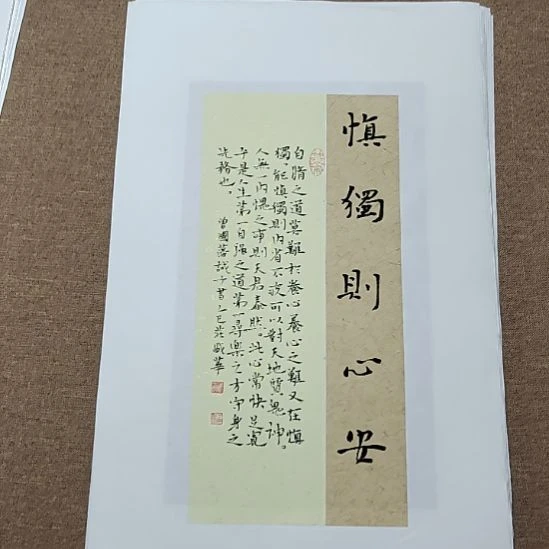 慎獨則心安
自脩之道莫難於養心養心之難又在慎
獨。能慎獨則内省不疚可以對天地質鬼神。
人無一内愧之事則天君泰然。此心常快足寬
平是人生第一自強之道第一尋樂之方守身之
先務也。
曾國藩誡子書乙巳